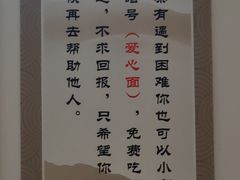 有遇到困难你也可以小
号(爱心面),免费吃
,不求回报,只希望你
候再去帮助他人。